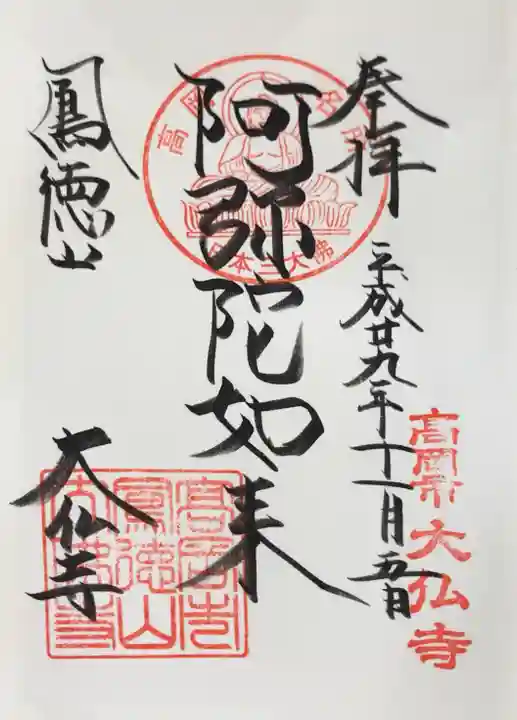 奉拝
平成廿九年十一月五日
高岡市 大仏寺
阿弥陀如来
高岡
日本三大佛
鳳徳山
大仏寺
高岡市
鳳徳山
大佛寺